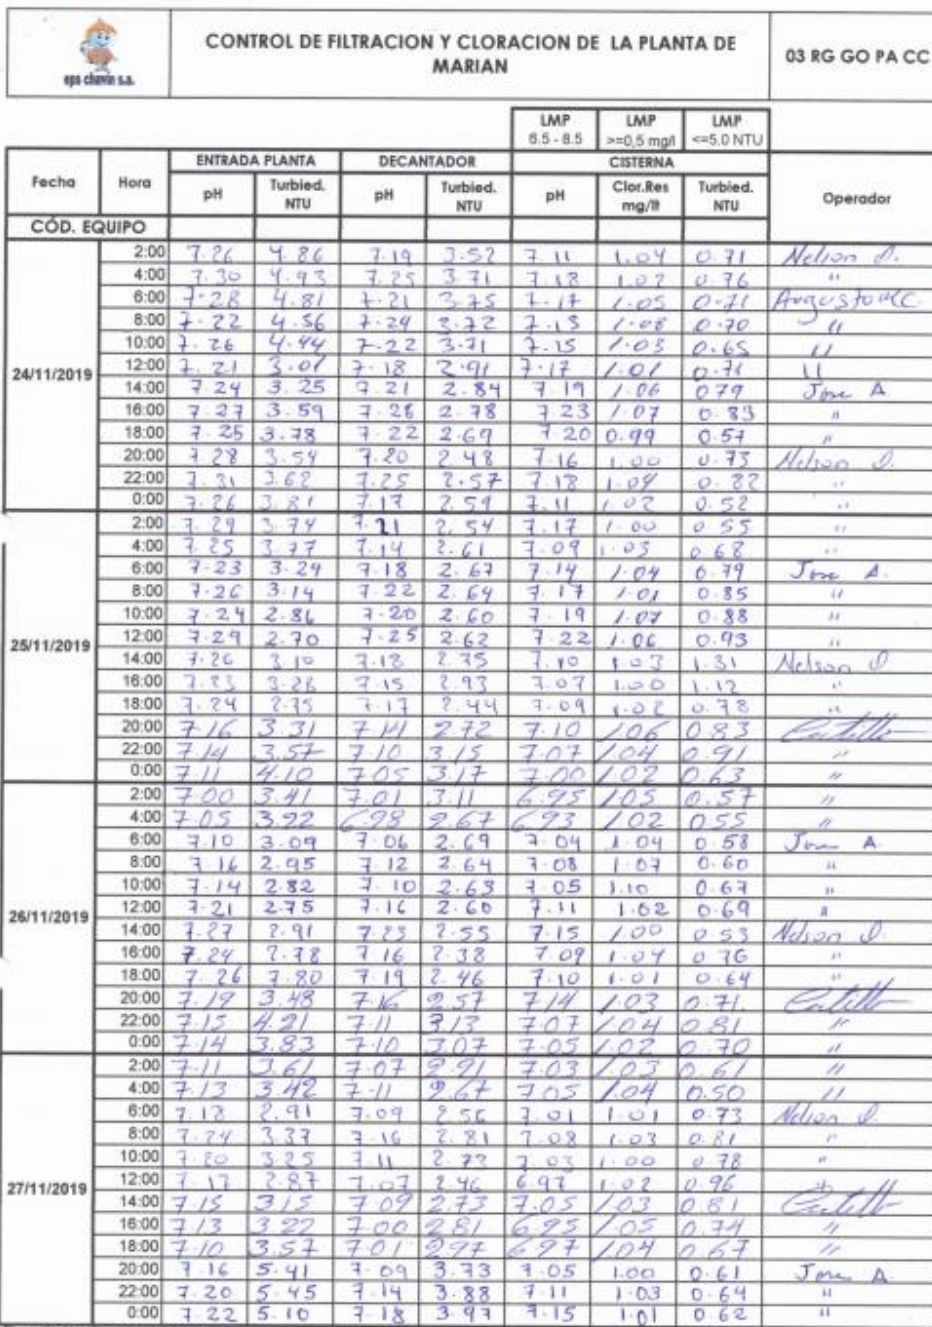 eps chavin s.a.
CONTROL DE FILTRACION Y CLORACION DE LA PLANTA DE
MARIAN
03 RG GO PA CC
LMP LMP LMP
6.5 - 8.5 >=0,5 mg/l <=5.0 NTU
ENTRADA PLANTA DECANTADOR CISTERNA
Fecha Hora pH Turbied. NTU pH Turbied. NTU pH Clor.Res mg/lt Turbied. NTU Operador
CÓD. EQUIPO
24/11/2019
2:00 7.26 4.86 7.19 3.52 7.11 1.04 0.71 Nelson O.
4:00 7.30 4.93 7.25 3.71 7.18 1.02 0.76 "
6:00 7.28 4.81 7.21 3.75 7.17 1.05 0.71 Augusto MC.
8:00 7.22 4.56 7.24 3.72 7.13 1.08 0.70 "
10:00 7.26 4.44 7.22 3.71 7.15 1.03 0.65 "
12:00 7.21 3.01 7.18 2.91 7.17 1.01 0.71 "
14:00 7.24 3.25 7.21 2.84 7.19 1.06 0.79 Jose A
16:00 7.27 3.59 7.26 2.78 7.23 1.07 0.83 "
18:00 7.25 3.78 7.22 2.69 7.20 0.99 0.57 "
20:00 7.28 3.54 7.20 2.48 7.16 1.00 0.73 Nelson O.
22:00 7.31 3.62 7.25 2.57 7.18 1.04 0.82 "
0:00 7.26 3.81 7.17 2.59 7.11 1.02 0.52 "
25/11/2019
2:00 7.29 3.74 7.21 2.54 7.17 1.00 0.55 "
4:00 7.25 3.77 7.14 2.61 7.09 1.03 0.68 "
6:00 7.23 3.24 7.18 2.67 7.14 1.04 0.79 Jose A.
8:00 7.26 3.14 7.22 2.64 7.17 1.01 0.85 "
10:00 7.24 2.86 7.20 2.60 7.19 1.07 0.88 "
12:00 7.29 2.70 7.25 2.62 7.22 1.06 0.93 "
14:00 7.26 3.10 7.18 2.75 7.10 1.03 1.31 Nelson O
16:00 7.23 3.26 7.15 2.93 7.07 1.00 1.12 "
18:00 7.24 2.75 7.17 2.44 7.09 1.02 0.78 "
20:00 7.16 3.31 7.14 2.72 7.10 1.06 0.83
22:00 7.14 3.57 7.10 3.15 7.07 1.04 0.91 "
0:00 7.11 4.10 7.05 3.17 7.00 1.02 0.63 "
26/11/2019
2:00 7.00 3.41 7.01 3.11 6.95 1.05 0.57 "
4:00 7.05 3.22 6.98 2.67 6.93 1.02 0.55 "
6:00 7.10 3.09 7.06 2.69 7.04 1.04 0.58 Jose A
8:00 7.16 2.95 7.12 2.64 7.08 1.07 0.60 "
10:00 7.14 2.82 7.10 2.63 7.05 1.10 0.67 "
12:00 7.21 2.75 7.16 2.60 7.11 1.02 0.69 "
14:00 7.27 2.91 7.23 2.55 7.15 1.00 0.53 Nelson O.
16:00 7.24 2.78 7.16 2.38 7.09 1.04 0.76 "
18:00 7.26 2.80 7.19 2.46 7.10 1.01 0.64 "
20:00 7.19 3.48 7.16 2.57 7.14 1.03 0.71
22:00 7.15 4.21 7.11 3.13 7.07 1.04 0.81 "
0:00 7.14 3.83 7.10 3.07 7.05 1.02 0.70 "
27/11/2019
2:00 7.11 3.61 7.07 2.91 7.03 1.03 0.61 "
4:00 7.13 3.42 7.11 2.67 7.05 1.04 0.50 "
6:00 7.18 2.91 7.09 2.56 7.01 1.01 0.73 Nelson O.
8:00 7.24 3.37 7.16 2.81 7.08 1.03 0.81 "
10:00 7.20 3.25 7.11 2.72 7.03 1.00 0.78 "
12:00 7.17 2.87 7.07 2.46 6.97 1.02 0.96
14:00 7.15 3.15 7.09 2.73 7.05 1.03 0.81
16:00 7.13 3.22 7.00 2.81 6.95 1.05 0.74 "
18:00 7.10 3.57 7.01 2.97 6.97 1.04 0.67 "
20:00 7.16 5.41 7.09 3.73 7.05 1.00 0.61 Jose A.
22:00 7.20 5.45 7.14 3.88 7.11 1.03 0.64 "
0:00 7.22 5.10 7.18 3.97 7.15 1.01 0.62 "